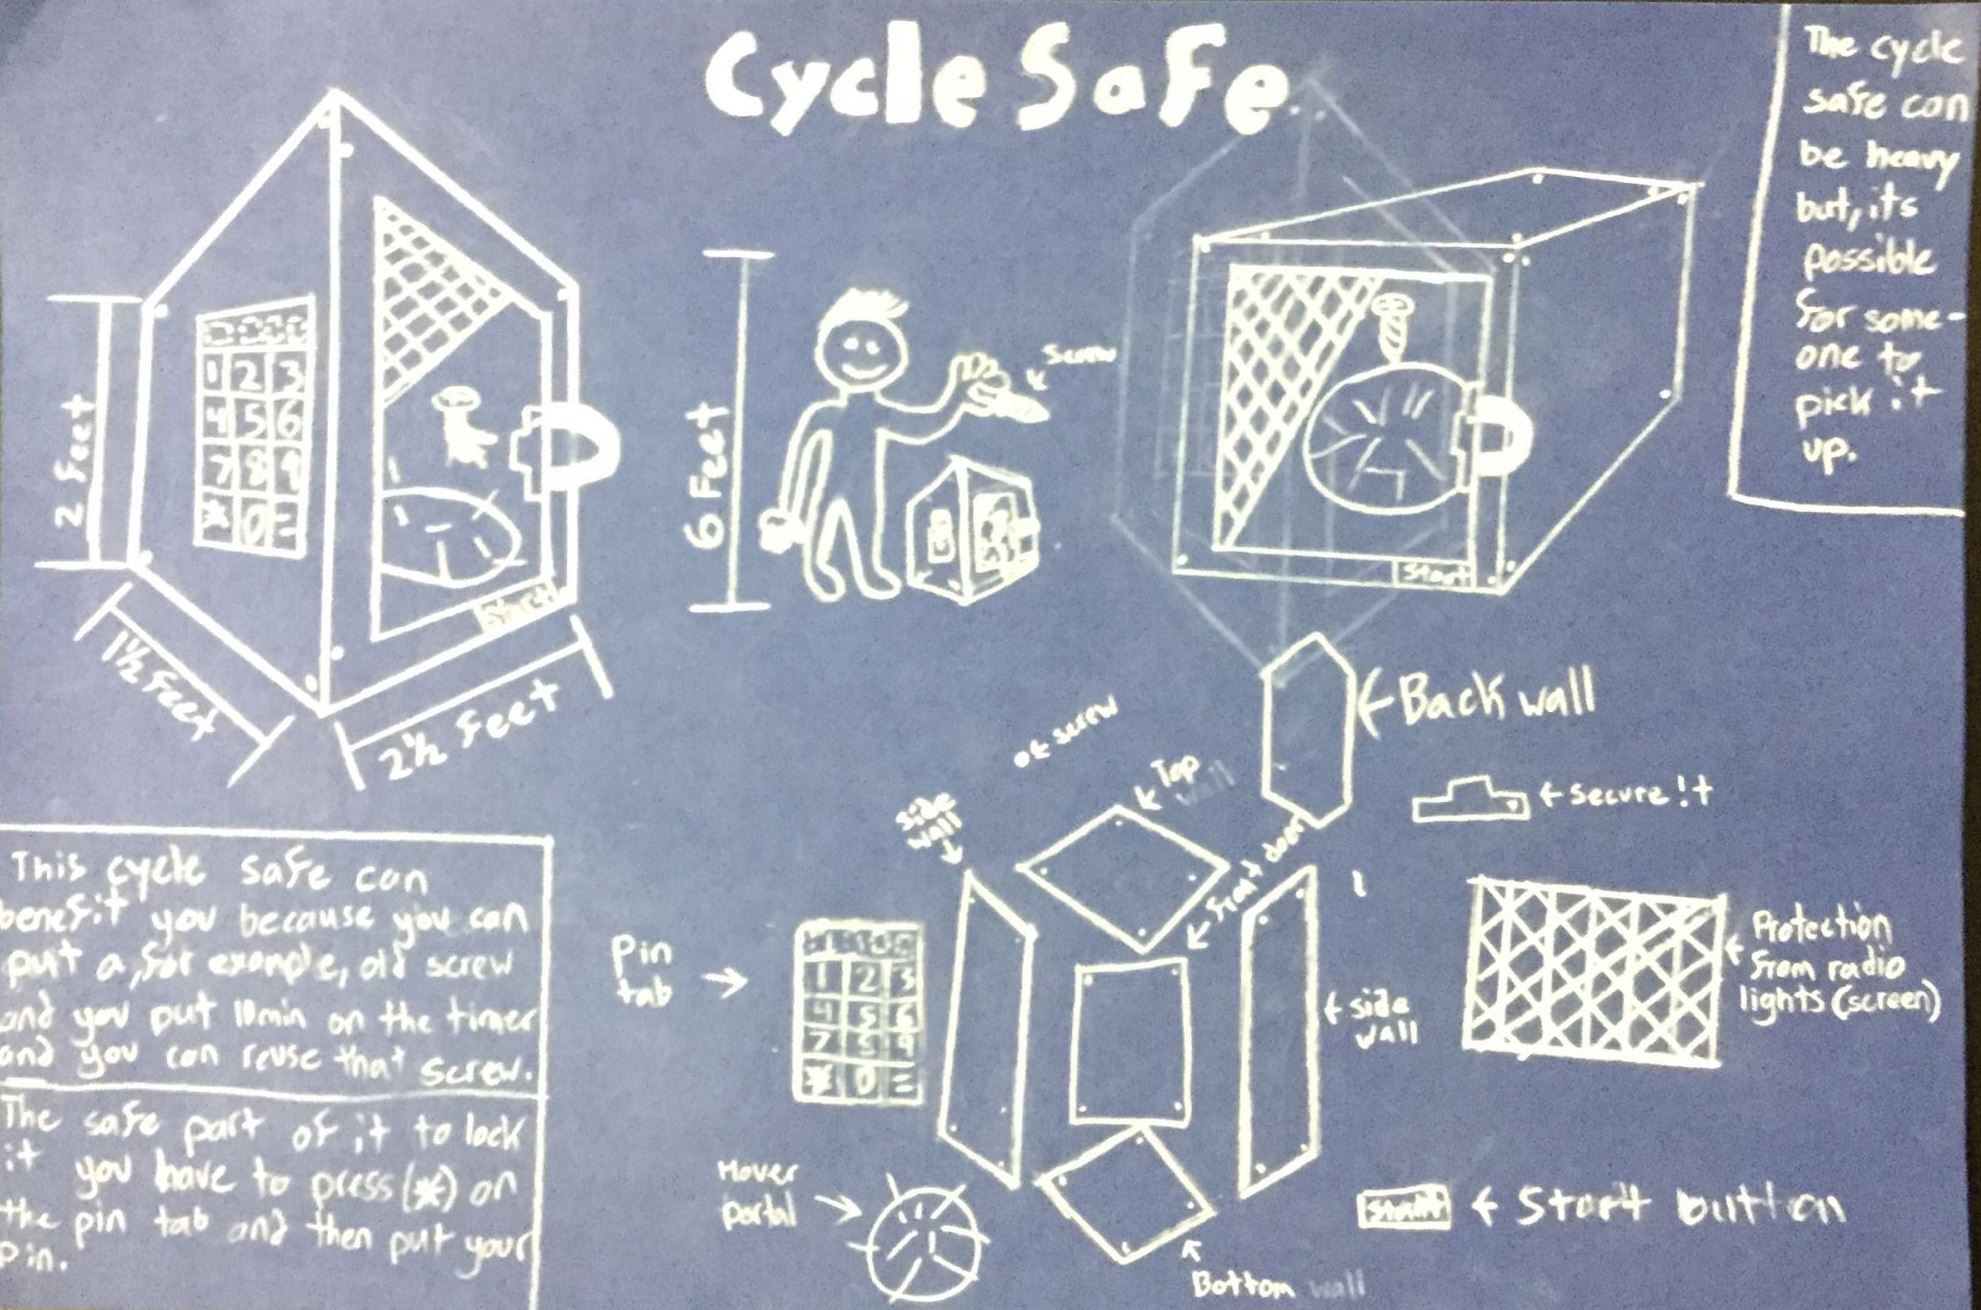 Cycle Safe
The cycle
safe can
be heavy
but, its
possible
for some-
one to
pick it
up.
1 2 3
4 5 6
7 8 9
* 0 =
Start
2 Feet
1½ Feet
2½ Feet
6 Feet
Screw
Start
Back wall
screw
Top
wall
secure it
side
wall
front door
Pin
tab
1 2 3
4 5 6
7 8 9
* 0 =
side
wall
Protection
from radio
lights (screen)
Hover
portal
Start
Start button
Bottom wall
This cycle safe can
benefit you because you can
put a, for example, old screw
and you put 10min on the timer
and you can reuse that screw.
The safe part of it to lock
it you have to press (*) on
the pin tab and then put your
Pin.